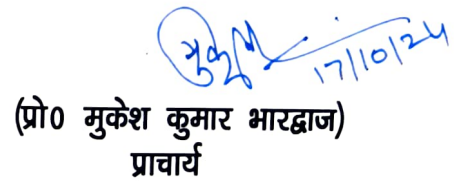 17/10/24
(प्रो0 मुकेश कुमार भारद्वाज)
प्राचार्य